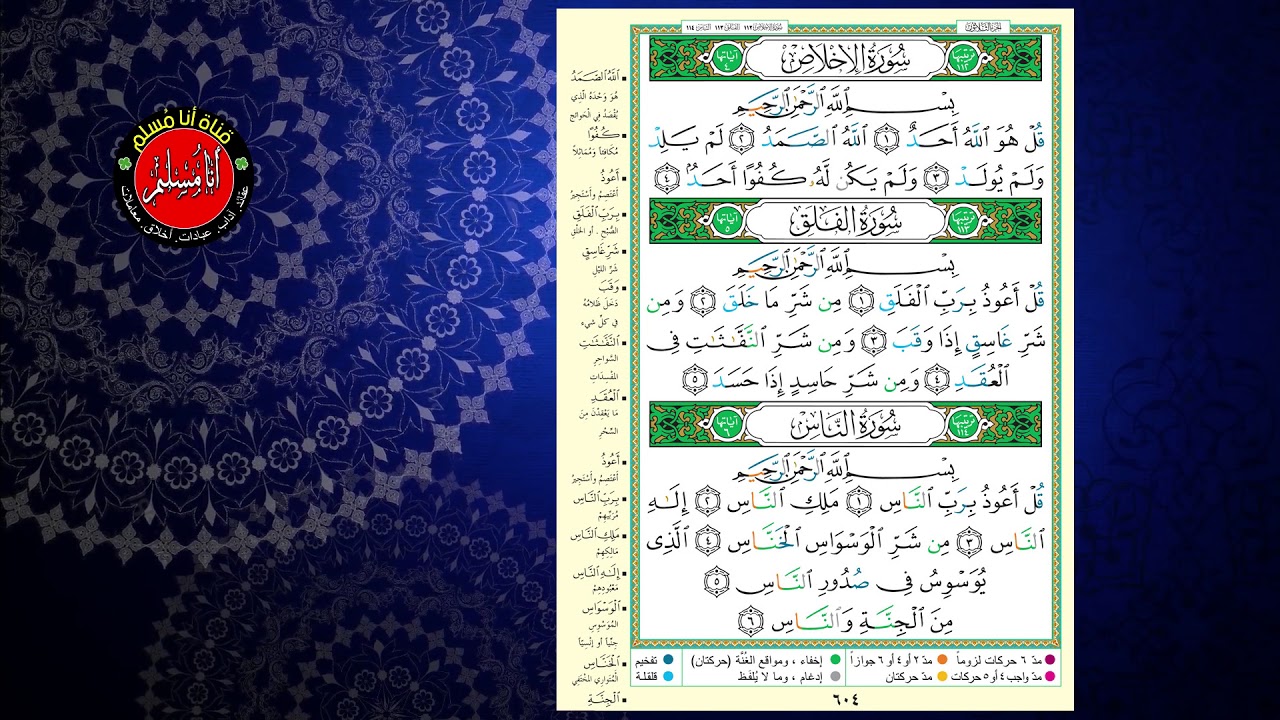 قناة أنا مُسلم
أنا مُسْلِمٌ
عقائد. آداب. عبادات. أخلاق. معاملات
سُورَةُ الإِخْلَاصِ ١١٢ الفَلَق ١١٣ النَّاس ١١٤
الجزء الثلاثون
ترتيبها ١١٢ سُورَةُ الإِخْلَاصِ آياتها ٤
بِسْمِ ٱللَّهِ ٱلرَّحْمَٰنِ ٱلرَّحِيمِ
قُلْ هُوَ ٱللَّهُ أَحَدٌ ١ ٱللَّهُ ٱلصَّمَدُ ٢ لَمْ يَلِدْ
وَلَمْ يُولَدْ ٣ وَلَمْ يَكُن لَّهُۥ كُفُوًا أَحَدٌۢ ٤
ترتيبها ١١٣ سُورَةُ الفَلَقِ آياتها ٥
بِسْمِ ٱللَّهِ ٱلرَّحْمَٰنِ ٱلرَّحِيمِ
قُلْ أَعُوذُ بِرَبِّ ٱلْفَلَقِ ١ مِن شَرِّ مَا خَلَقَ ٢ وَمِن
شَرِّ غَاسِقٍ إِذَا وَقَبَ ٣ وَمِن شَرِّ ٱلنَّفَّٰثَٰتِ فِى
ٱلْعُقَدِ ٤ وَمِن شَرِّ حَاسِدٍ إِذَا حَسَدَ ٥
ترتيبها ١١٤ سُورَةُ النَّاسِ آياتها ٦
بِسْمِ ٱللَّهِ ٱلرَّحْمَٰنِ ٱلرَّحِيمِ
قُلْ أَعُوذُ بِرَبِّ ٱلنَّاسِ ١ مَلِكِ ٱلنَّاسِ ٢ إِلَٰهِ
ٱلنَّاسِ ٣ مِن شَرِّ ٱلْوَسْوَاسِ ٱلْخَنَّاسِ ٤ ٱلَّذِى
يُوَسْوِسُ فِى صُدُورِ ٱلنَّاسِ ٥
مِنَ ٱلْجِنَّةِ وَٱلنَّاسِ ٦
ٱللَّهُ ٱلصَّمَدُ
هُوَ وَحْدَهُ الَّذِي
يُقْصَدُ فِي الْحَوَائِجِ
كُفُوًا
مُكَافِئًا وَمُمَاثِلًا
أَعُوذُ
أَعْتَصِمُ وَأَسْتَجِيرُ
بِرَبِّ ٱلْفَلَقِ
الصُّبْحِ. أو الخَلْقِ
شَرِّ غَاسِقٍ
شَرِّ اللَّيْلِ
وَقَبَ
دَخَلَ ظَلَامُهُ
فِي كلِّ شَيء
ٱلنَّفَّٰثَٰتِ
السَّوَاحِرِ
المُفْسِدَاتِ
ٱلْعُقَدِ
مَا يَعْقِدْنَ مِنَ
السِّحْرِ
أَعُوذُ
أَعْتَصِمُ وَأَسْتَجِيرُ
بِرَبِّ ٱلنَّاسِ
مُرَبِّيهِمْ
مَلِكِ ٱلنَّاسِ
مَالِكِهِمْ
إِلَٰهِ ٱلنَّاسِ
مَعْبُودِهِمْ
ٱلْوَسْوَاسِ
المُوَسْوِسِ
جِنِّيًّا أو إنْسِيًّا
ٱلْخَنَّاسِ
المُتَوَارِي المُخْتَفِي
ٱلْجِنَّةِ
مدّ ٦ حركات لزوماً
مدّ ٢ أو ٤ أو ٦ جوازاً
إخفاء ، ومواقع الغُنَّة (حركتان)
تفخيم
مدّ واجب ٤ أو ٥ حركات
مدّ حركتان
إدغام ، وما لا يُلفَظ
قلقلة
٦٠٤